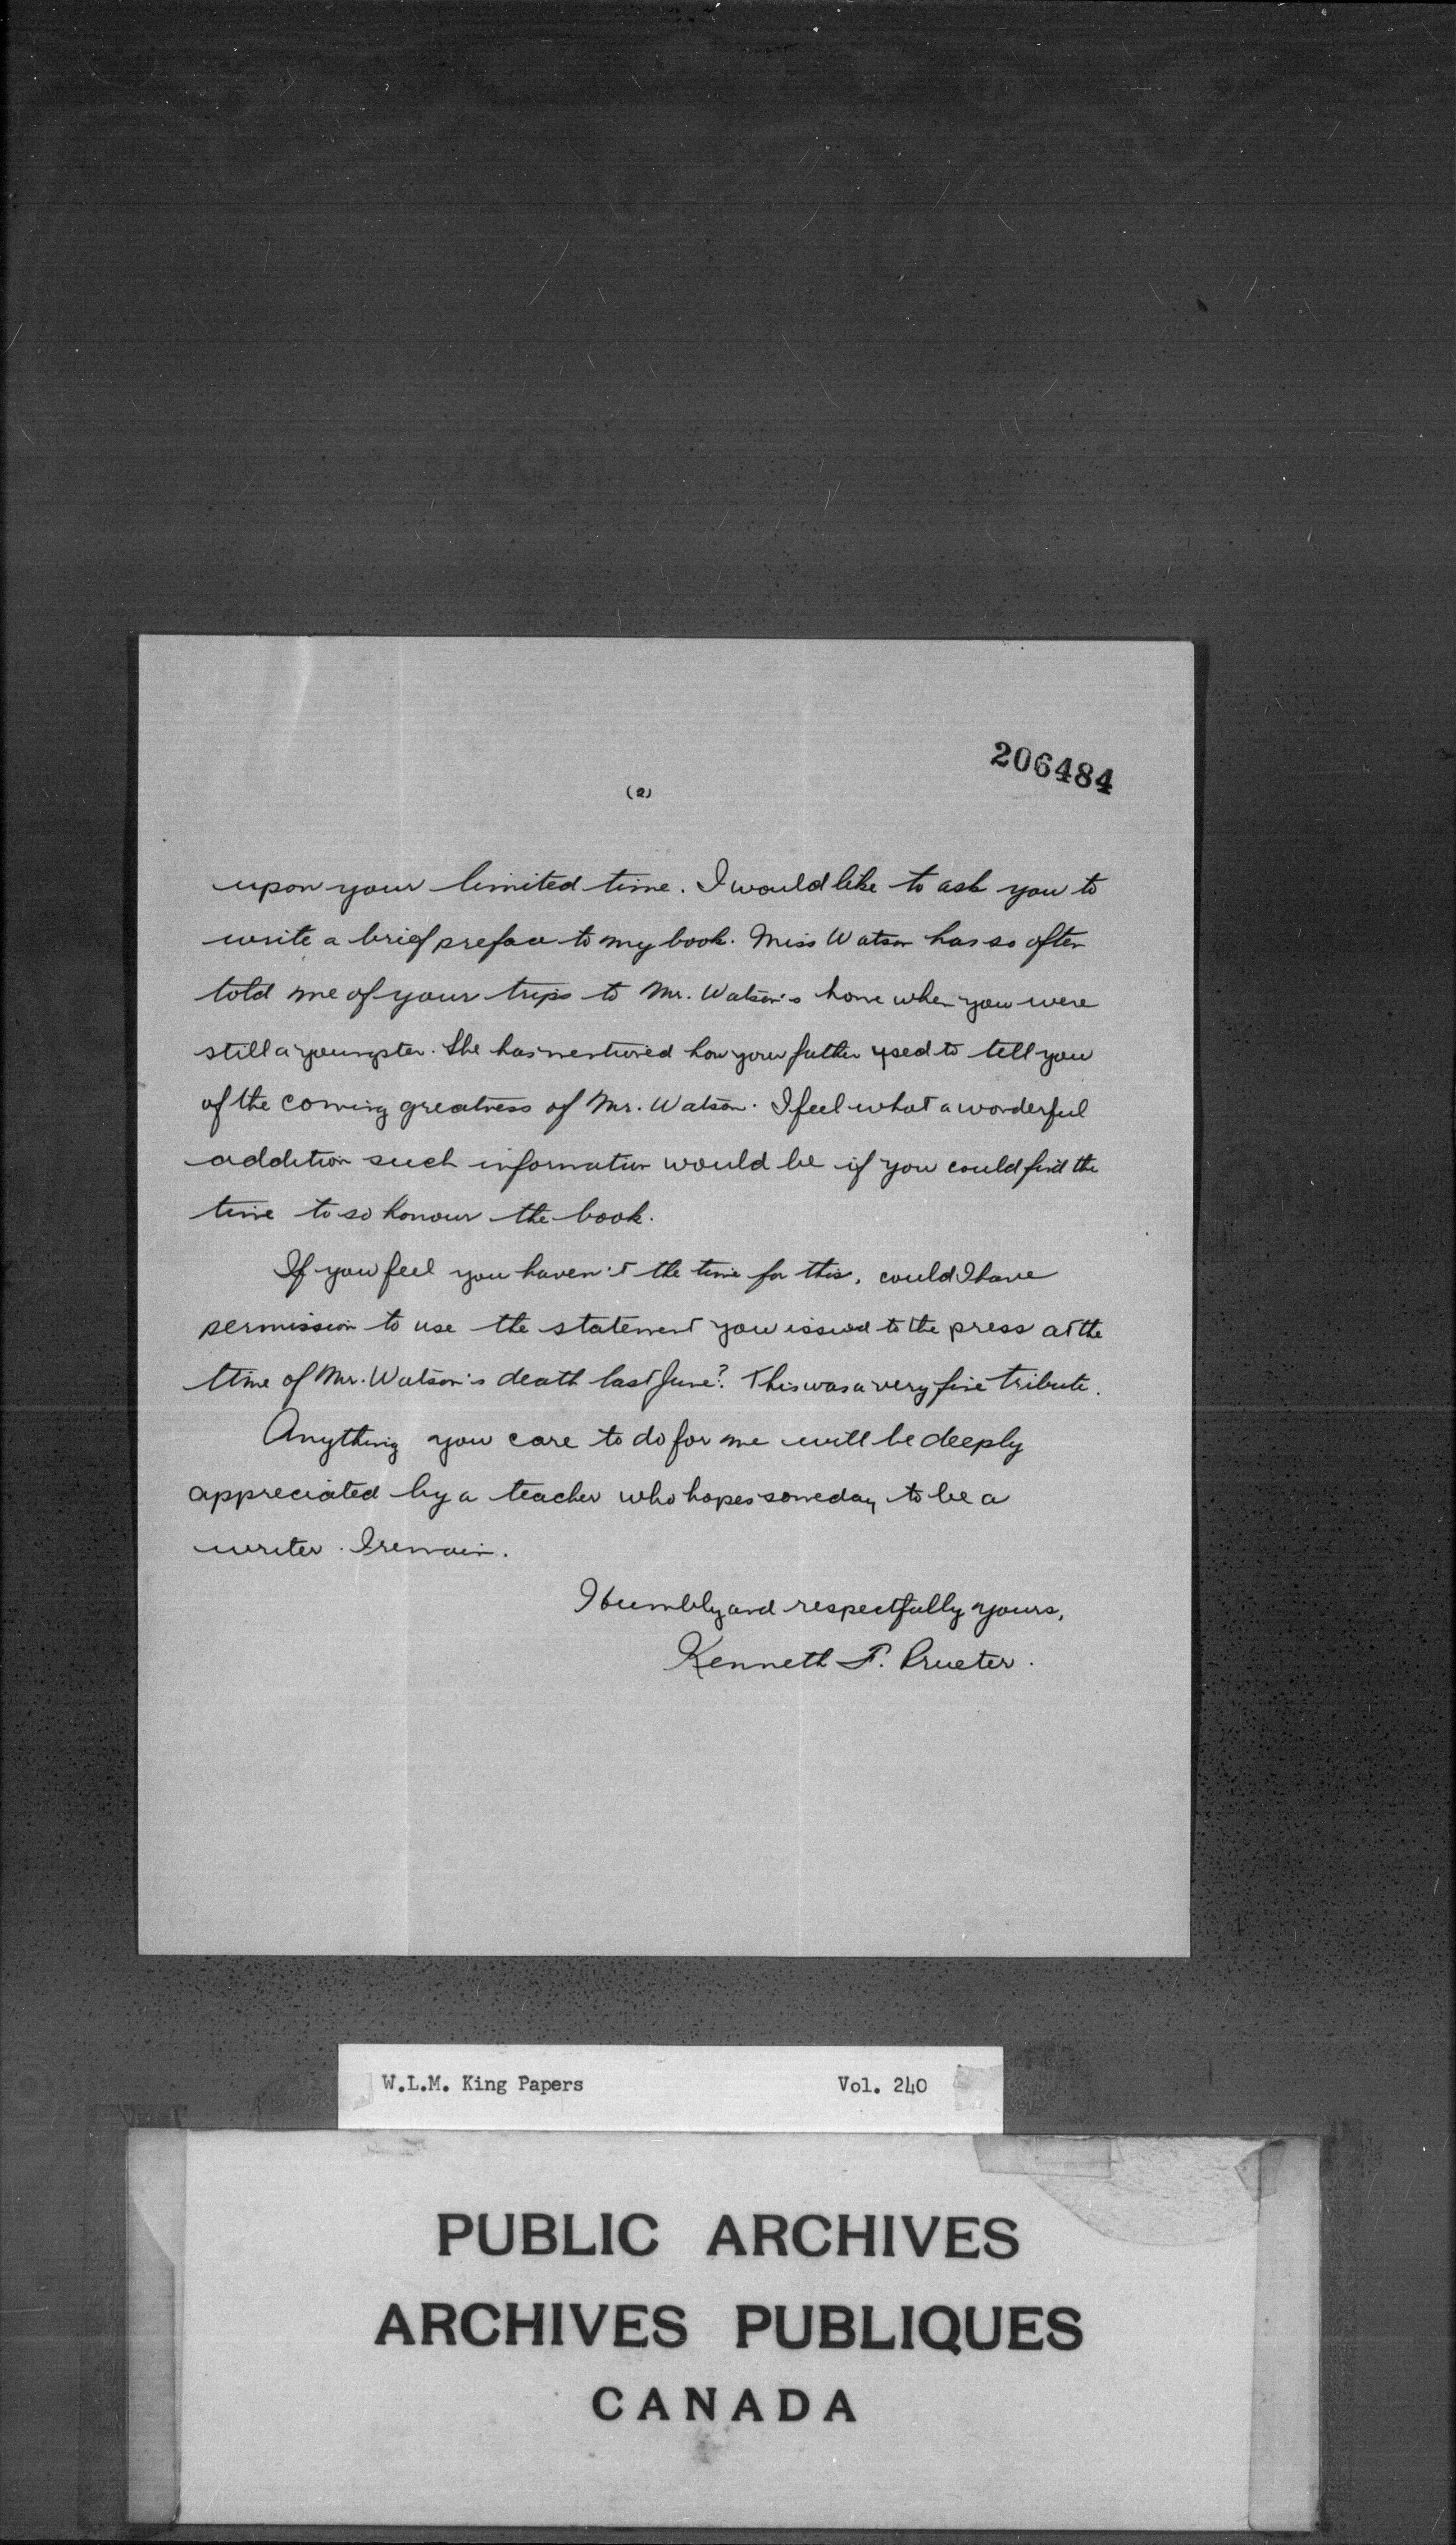 206484
(2)
upon your limited time. I would like to ask you to
write a brief preface to my book. Miss Watson has so often
told me of your trips to Mr. Watson's home when you were
still a youngster. She has mentioned how your father used to tell you
of the coming greatness of Mr. Watson. I feel what a wonderful
addition such information would be if you could find the
time to so honour the book.
If you feel you haven't the time for this, could I have
permission to use the statement you issued to the press at the
time of Mr. Watson's death last June? This was a very fine tribute.
Anything you care to do for me will be deeply
appreciated by a teacher who hopes someday to be a
writer. I remain.
Humbly and respectfully yours,
Kenneth F. Prueter.
W.L.M. King Papers Vol. 240
PUBLIC ARCHIVES
ARCHIVES PUBLIQUES
CANADA